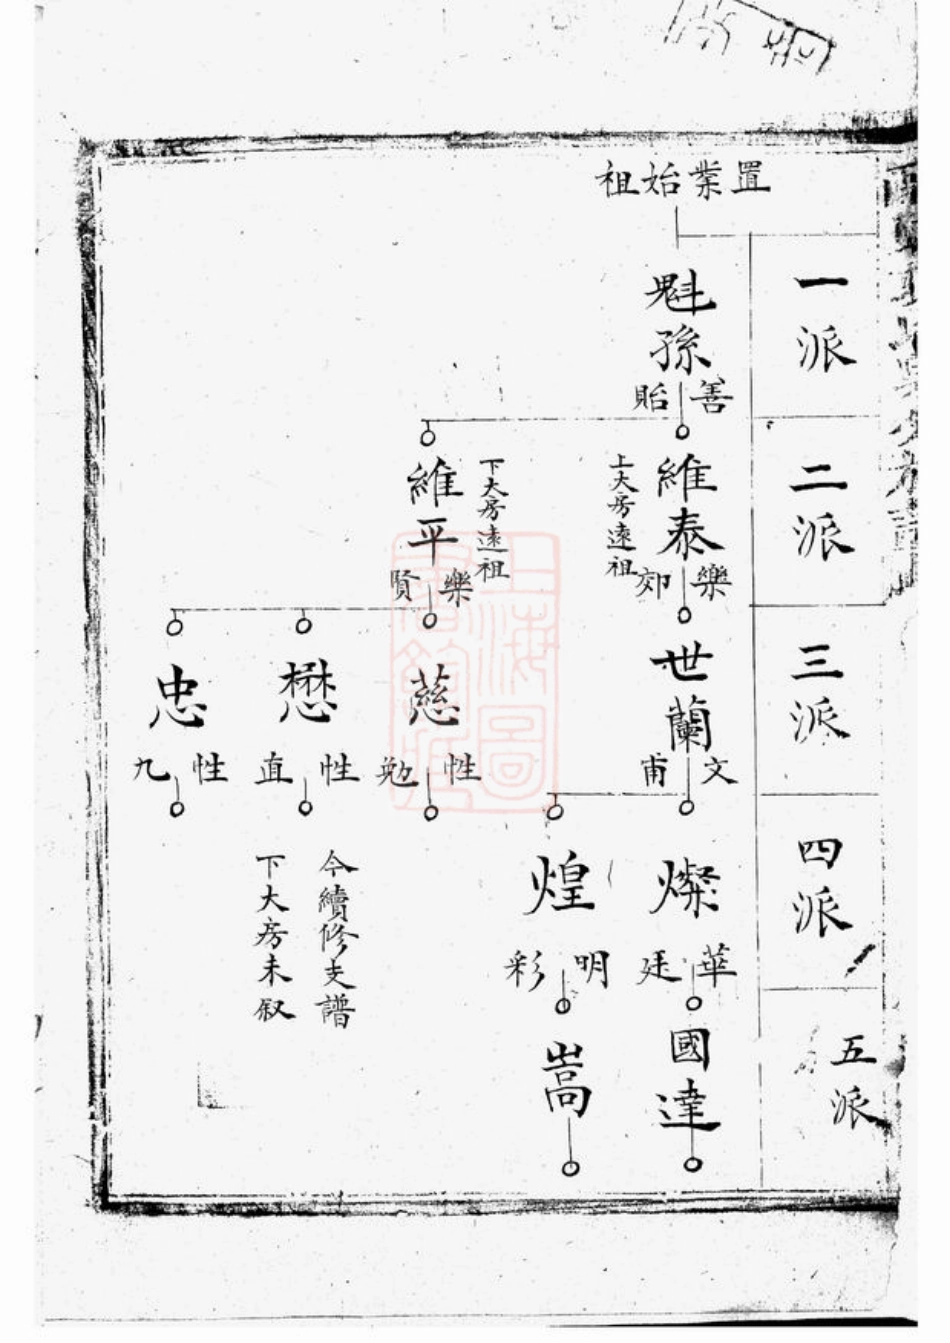 置業始祖
一派
魁孫
善貽
二派
維泰
上大房遠祖
樂郊
維平
下大房遠祖
樂賢
三派
世蘭
文甫
慈
性勉
懋
性直
忠
性九
四派
燦
華廷
煌
明彩
今續修支譜
下大房未叙
五派
國達
嵩
上海圖